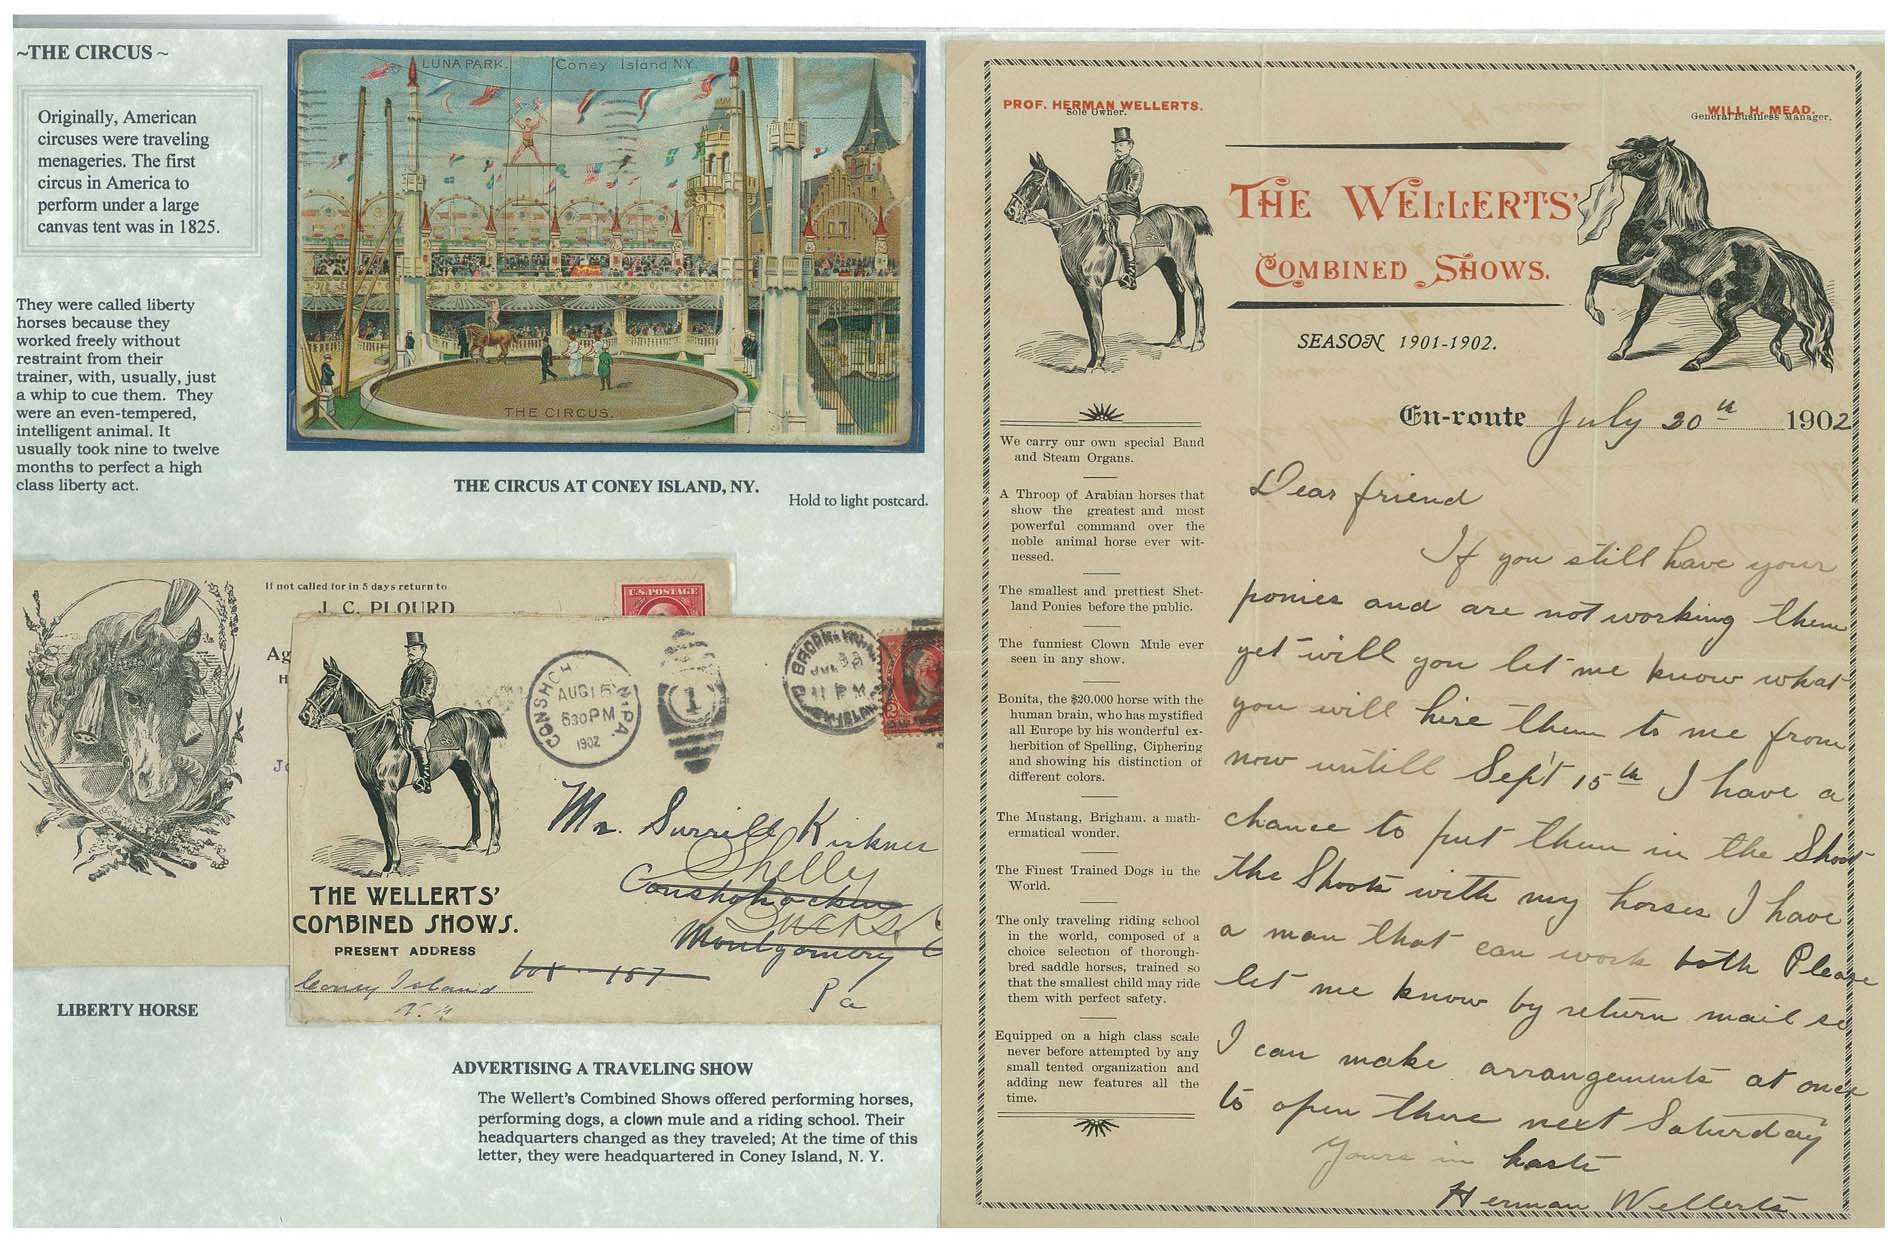 ~THE CIRCUS ~
Originally, American
circuses were traveling
menageries. The first
circus in America to
perform under a large
canvas tent was in 1825.
They were called liberty
horses because they
worked freely without
restraint from their
trainer, with, usually, just
a whip to cue them. They
were an even-tempered,
intelligent animal. It
usually took nine to twelve
months to perfect a high
class liberty act.
LUNA PARK. Coney Island N.Y.
THE CIRCUS.
THE CIRCUS AT CONEY ISLAND, NY.
Hold to light postcard.
If not called for in 5 days return to
J. C. PLOURD
Ag
H
U.S. POSTAGE
CONSHOH N. PA.
AUG 15
630 PM
1902
1
11 P M
Mr. Surrill Kirkner
Shelly
Conshohocken
Bucks. C
Montgomery C
box 157
Pa
THE WELLERTS'
COMBINED SHOWS.
PRESENT ADDRESS
Coney Island
N. Y
LIBERTY HORSE
ADVERTISING A TRAVELING SHOW
The Wellert's Combined Shows offered performing horses,
performing dogs, a clown mule and a riding school. Their
headquarters changed as they traveled; At the time of this
letter, they were headquartered in Coney Island, N. Y.
PROF. HERMAN WELLERTS.
Sole Owner.
WILL H. MEAD.
General Business Manager.
THE WELLERTS'
COMBINED SHOWS.
SEASON 1901-1902.
En-route July 30th 1902
We carry our own special Band
and Steam Organs.
A Throop of Arabian horses that
show the greatest and most
powerful command over the
noble animal horse ever wit-
nessed.
The smallest and prettiest Shet-
land Ponies before the public.
The funniest Clown Mule ever
seen in any show.
Bonita, the $20.000 horse with the
human brain, who has mystified
all Europe by his wonderful ex-
herbition of Spelling, Ciphering
and showing his distinction of
different colors.
The Mustang, Brigham. a math-
ermatical wonder.
The Finest Trained Dogs in the
World.
The only traveling riding school
in the world, composed of a
choice selection of thorough-
bred saddle horses, trained so
that the smallest child may ride
them with perfect safety.
Equipped on a high class scale
never before attempted by any
small tented organization and
adding new features all the
time.
Dear friend
If you still have your
ponies and are not working them
yet will you let me know what
you will hire them to me from
now untill Sep't 15th I have a
chance to put them in the Shoot
the Shoots with my horses I have
a man that can work both Please
let me know by return mail so
I can make arrangements at once
to open there next Saturday
Yours in haste
Herman Wellerts